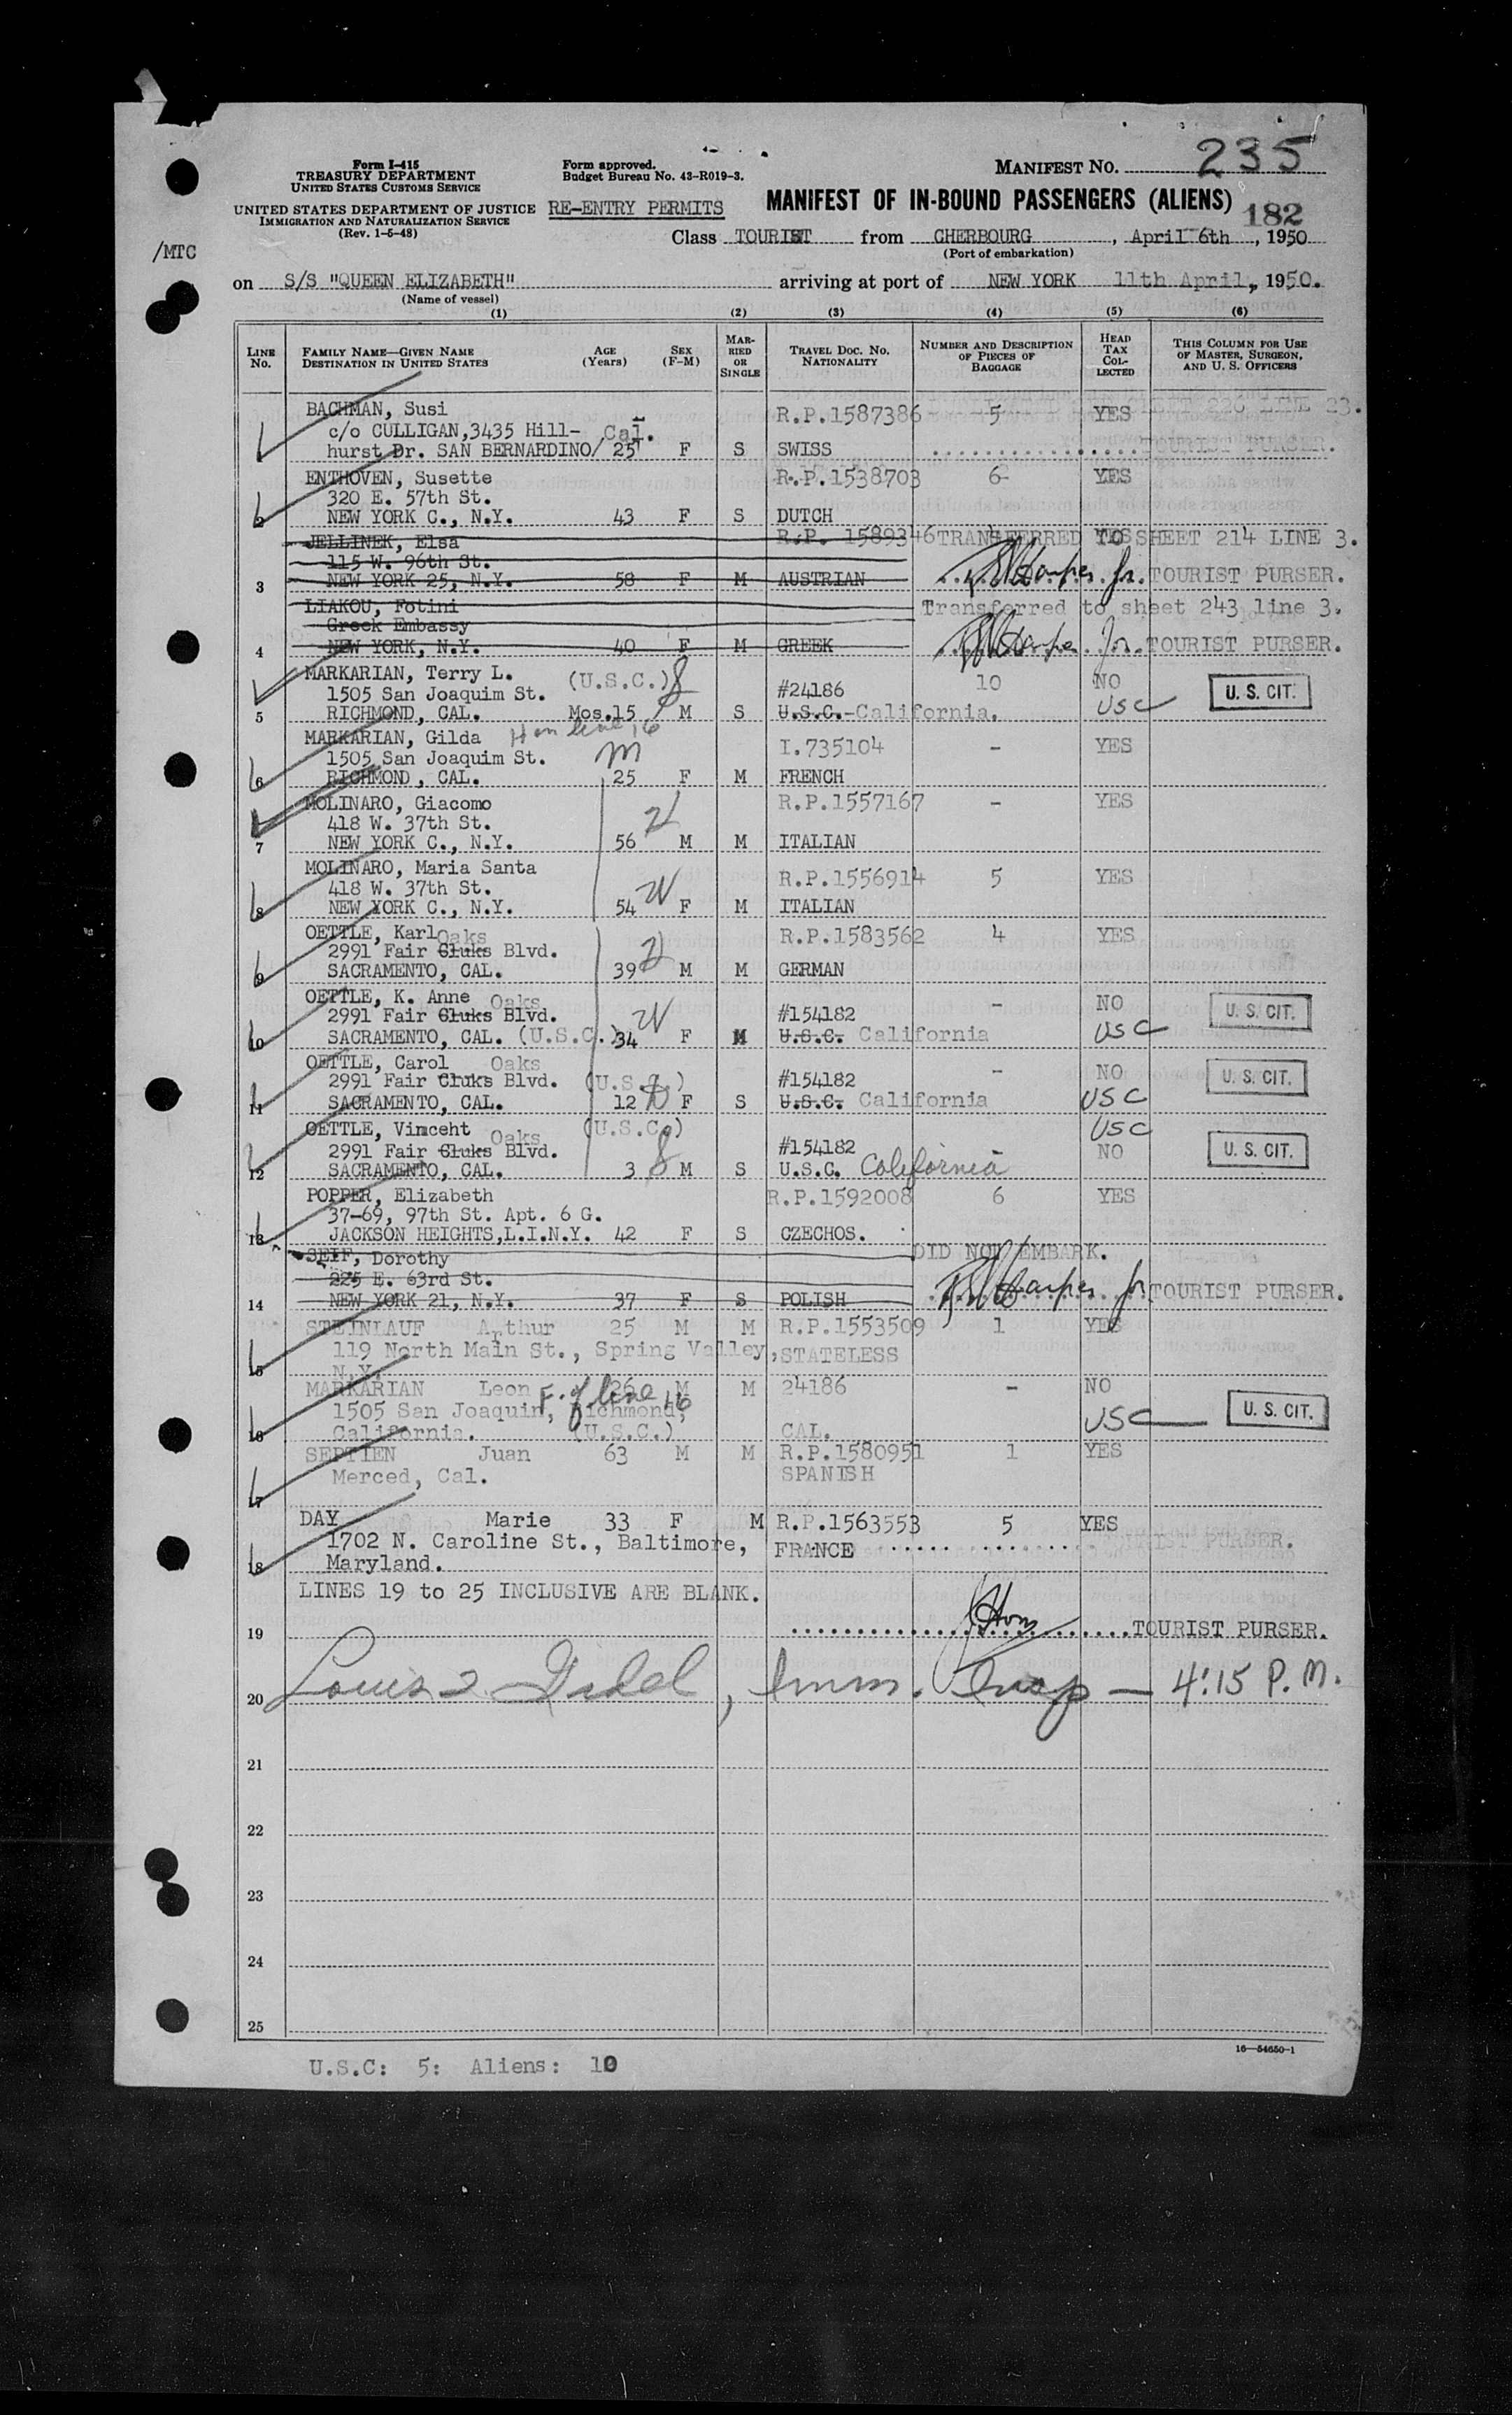 Form I-415
TREASURY DEPARTMENT
UNITED STATES CUSTOMS SERVICE
UNITED STATES DEPARTMENT OF JUSTICE
IMMIGRATION AND NATURALIZATION SERVICE
(Rev. 1-5-48)
/MTC
Form approved.
Budget Bureau No. 43-R019-3.
RE-ENTRY PERMITS
MANIFEST NO. 235
MANIFEST OF IN-BOUND PASSENGERS (ALIENS) 182
Class TOURIST from CHERBOURG, April 6th, 1950
(Port of embarkation)
on S/S "QUEEN ELIZABETH" arriving at port of NEW YORK 11th April, 1950.
(Name of vessel)
(1) (2) (3) (4) (5) (6)
LINE No. FAMILY NAME—GIVEN NAME DESTINATION IN UNITED STATES AGE (Years) SEX (F-M) MARRIED OR SINGLE TRAVEL DOC. NO. NATIONALITY NUMBER AND DESCRIPTION OF PIECES OF BAGGAGE HEAD TAX COLLECTED THIS COLUMN FOR USE OF MASTER, SURGEON, AND U. S. OFFICERS
BACHMAN, Susi R.P.1587386 5 YES
c/o CULLIGAN,3435 Hill- Cal.
hurst Dr. SAN BERNARDINO/ 25 F S SWISS
ENTHOVEN, Susette R.P.1538703 6 YES
320 E. 57th St.
2 NEW YORK C., N.Y. 43 F S DUTCH
JELLINEK, Elsa R.P. 1589346 TRANSFERRED TO SHEET 214 LINE 3.
115 W. 96th St.
3 NEW YORK 25, N.Y. 58 F M AUSTRIAN TOURIST PURSER.
LIAKOU, Fotini Transferred to sheet 243 line 3.
Greek Embassy
4 NEW YORK, N.Y. 40 F M GREEK TOURIST PURSER.
MARKARIAN, Terry L. (U.S.C.) 10 NO
1505 San Joaquim St. #24186 U. S. CIT.
5 RICHMOND, CAL. Mos.15 M S U.S.C.-California. USC
MARKARIAN, Gilda H on line 16 I.735104 - YES
1505 San Joaquim St. m
6 RICHMOND, CAL. 25 F M FRENCH
MOLINARO, Giacomo R.P.1557167 - YES
418 W. 37th St.
7 NEW YORK C., N.Y. 56 M M ITALIAN
MOLINARO, Maria Santa R.P.1556914 5 YES
418 W. 37th St.
8 NEW YORK C., N.Y. 54 F M ITALIAN
OETTLE, Karl Oaks R.P.1583562 4 YES
2991 Fair Cluks Blvd.
9 SACRAMENTO, CAL. 39 M M GERMAN
OETTLE, K. Anne Oaks - NO
2991 Fair Cluks Blvd. #154182 U. S. CIT.
10 SACRAMENTO, CAL. (U.S.C.) 34 F M U.S.C. California USC
OETTLE, Carol Oaks - NO
2991 Fair Cluks Blvd. (U.S.C.) #154182 U. S. CIT.
11 SACRAMENTO, CAL. 12 F S U.S.C. California USC
OETTLE, Vimceht Oaks (U.S.C.) USC
2991 Fair Cluks Blvd. #154182 - NO U. S. CIT.
12 SACRAMENTO, CAL. 3 M S U.S.C. California
POPPER, Elizabeth R.P.1592008 6 YES
37-69, 97th St. Apt. 6 G.
13 JACKSON HEIGHTS,L.I.N.Y. 42 F S CZECHOS.
SEIF, Dorothy DID NOT EMBARK.
225 E. 63rd St.
14 NEW YORK 21, N.Y. 37 F S POLISH TOURIST PURSER.
STEINLAUF Arthur 25 M M R.P.1553509 1 YES
119 North Main St., Spring Valley, STATELESS
15 N.Y.
MARKARIAN Leon 26 M M 24186 - NO
1505 San Joaquin, Richmond, F. of line 16 U. S. CIT.
16 California. (U.S.C.) CAL. USC
SEPTIEN Juan 63 M M R.P.1580951 1 YES
Merced, Cal. SPANISH
17
DAY Marie 33 F M R.P.1563553 5 YES
1702 N. Caroline St., Baltimore, FRANCE
18 Maryland.
LINES 19 to 25 INCLUSIVE ARE BLANK.
19 TOURIST PURSER.
20 Louis , Imm. Insp — 4:15 P.M.
21
22
23
24
25
16—54650-1
U.S.C: 5: Aliens: 10